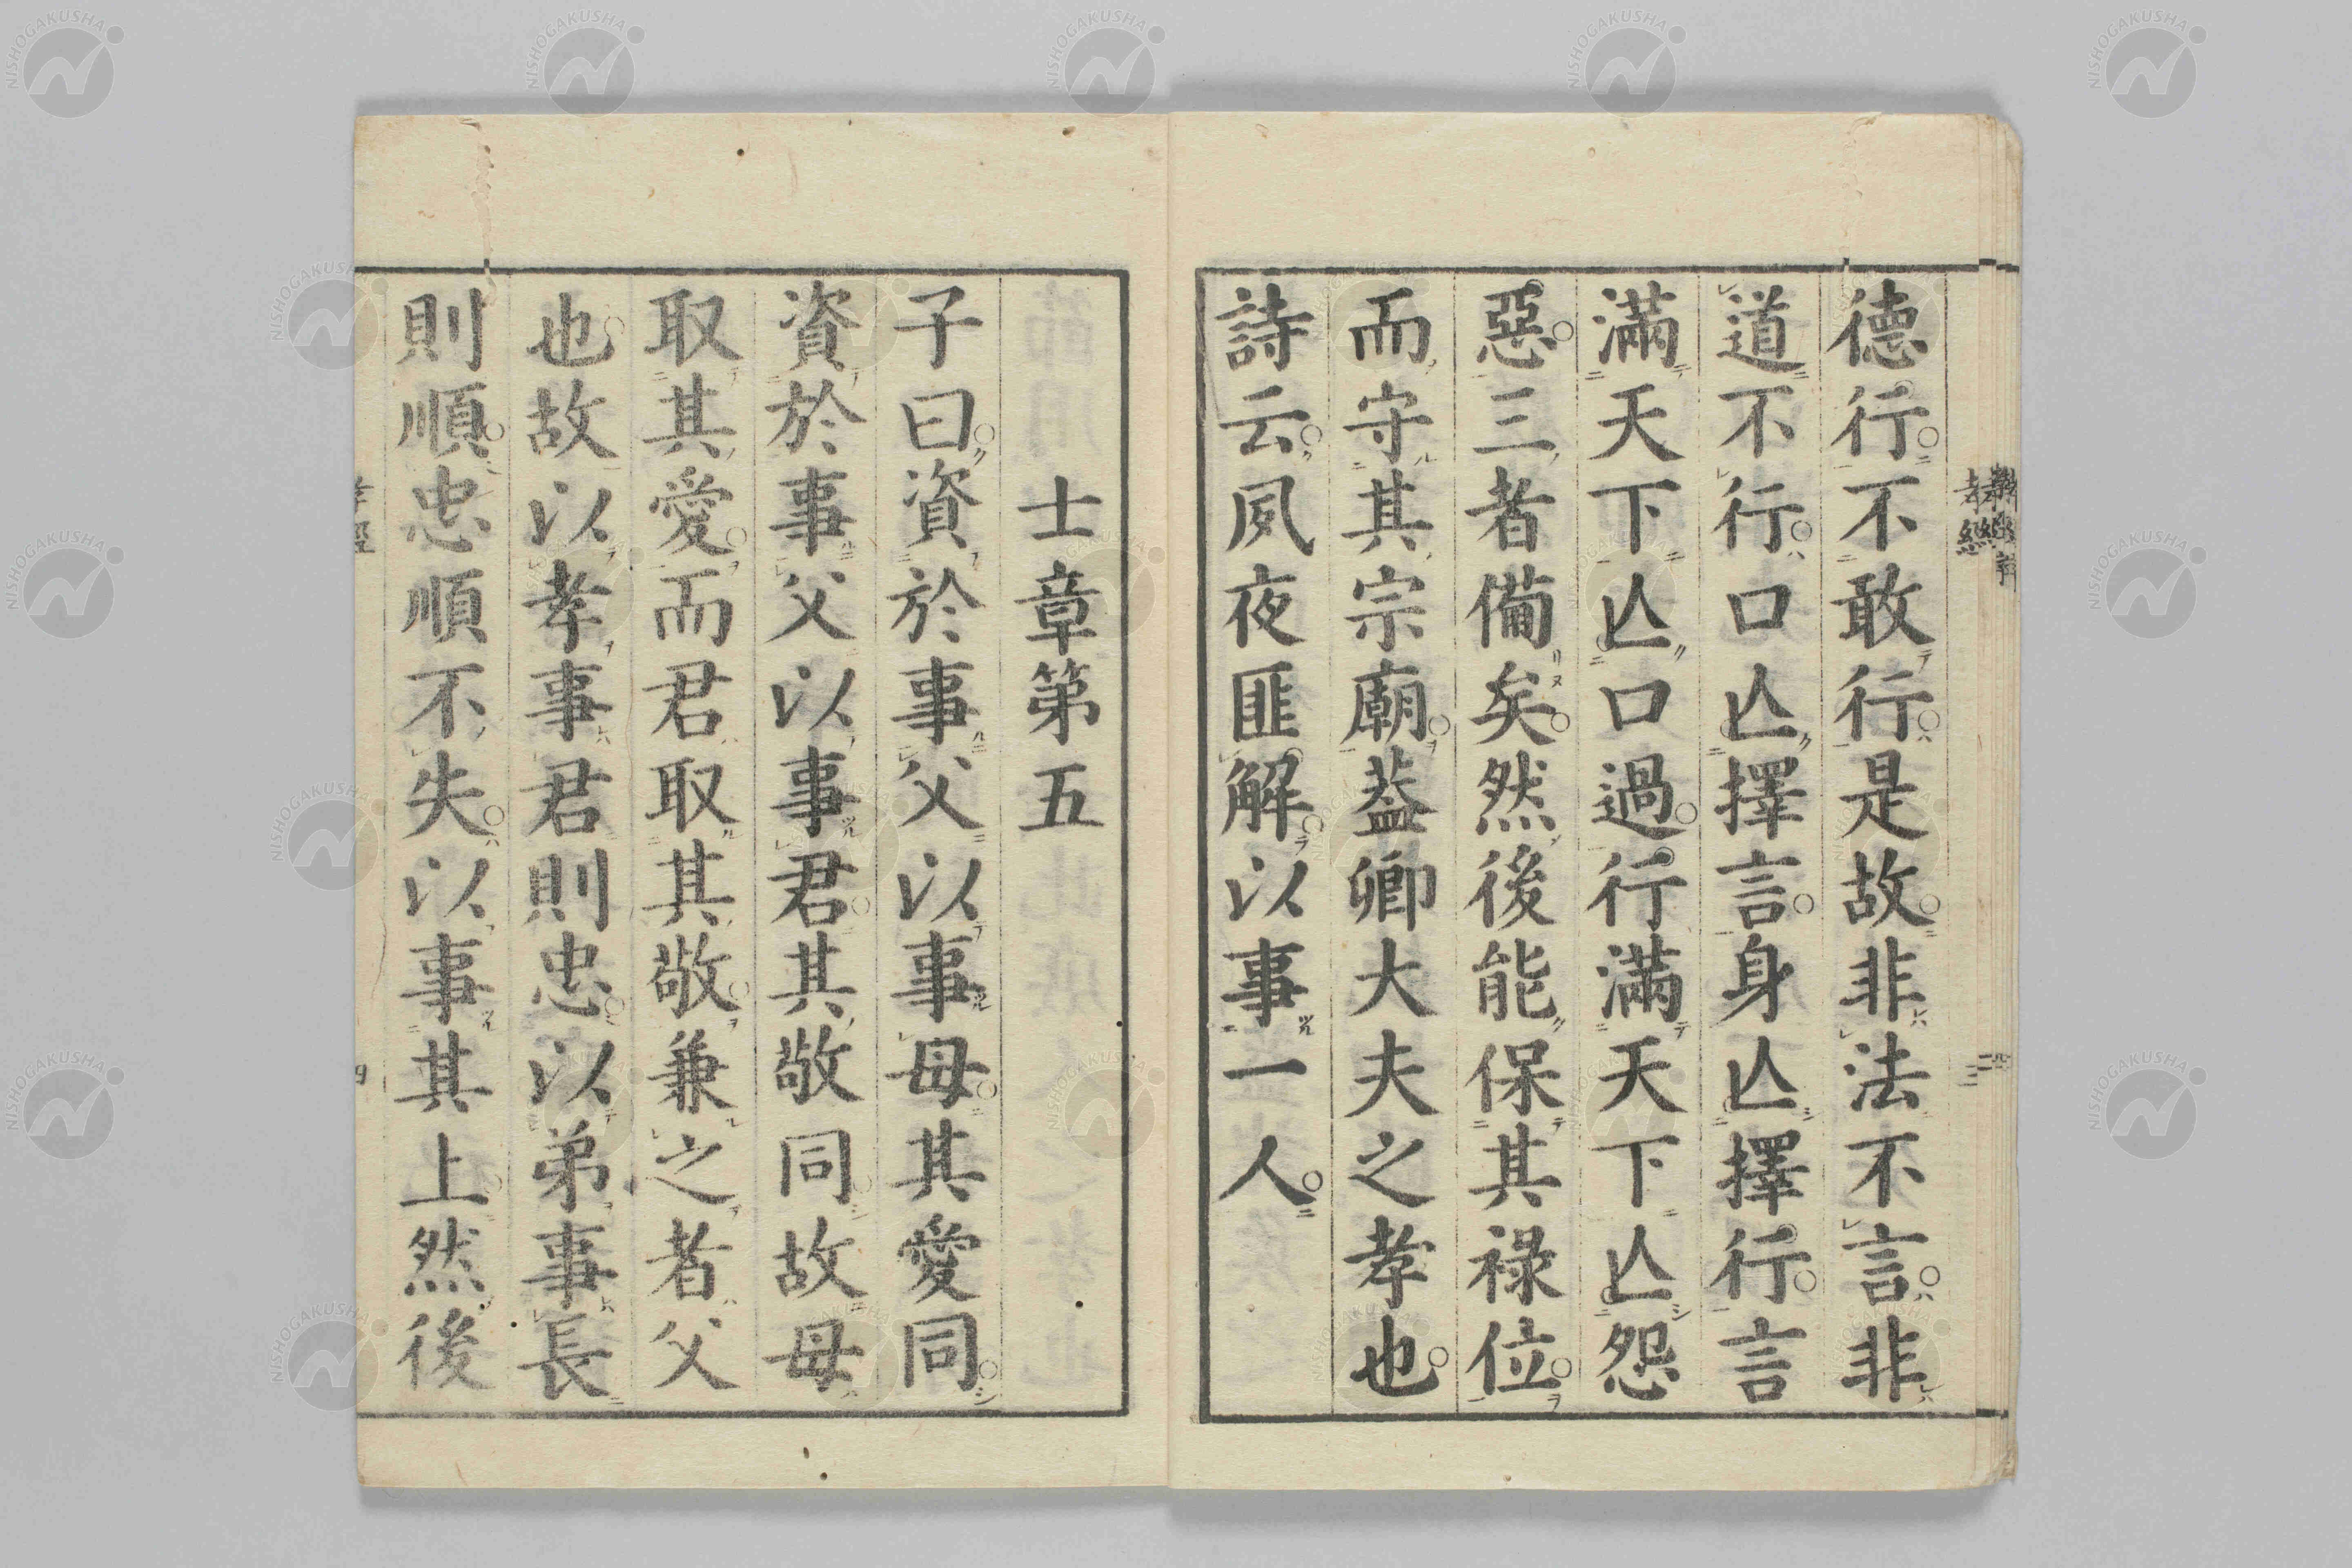 德行不敢行是故非法不言非
道不行口亾擇言身亾擇行言
滿天下亾口過行滿天下亾怨
惡三者備矣然後能保其祿位
而守其宗廟葢卿大夫之孝也
詩云夙夜匪解以事一人
士章第五
子曰資於事父以事母其愛同
資於事父以事君其敬同故母
取其愛而君取其敬兼之者父
也故以孝事君則忠以弟事長
則順忠順不失以事其上然後
孝經
NISHOGAKUSHA